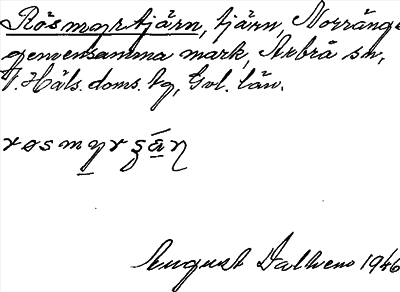 Rösmyrtjärn, tjärn, Norränge
gemensamma mark, Arbrå sn,
V. Häls. doms. tg, Gvl. län.
August Dalheno 1946